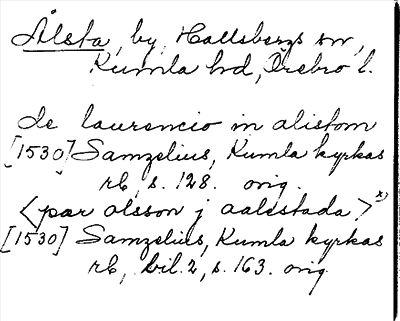 Ålsta, by, Hallsbergs sn,
Kumla hd, Örebro l.
de laurencio in alistom
[1530] Samzelius, Kumla kyrkas
rb, s. 128. orig.
<par olsson j aalestada> x)
[1530] Samzelius, Kumla kyrkas
rb, bil. 2, s. 163. orig.